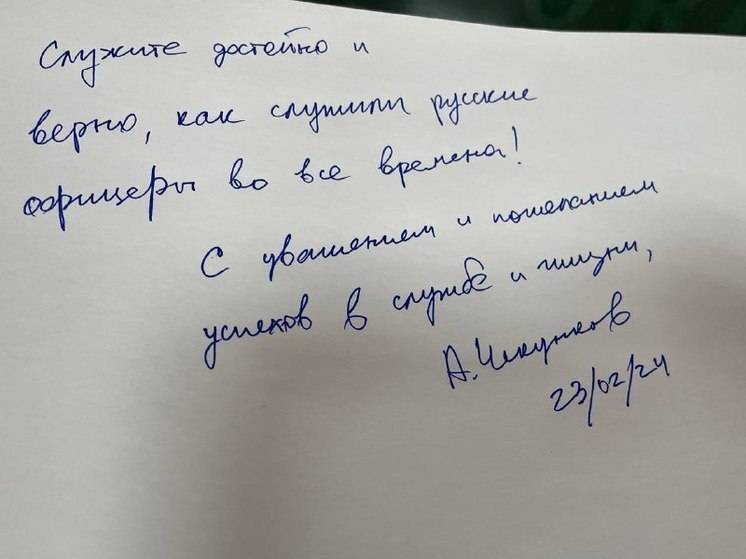 Служите достойно и
верно, как служили русские
офицеры во все времена!
С уважением и пожеланием
успехов в службе и жизни,
А. Чекунков
23/02/24